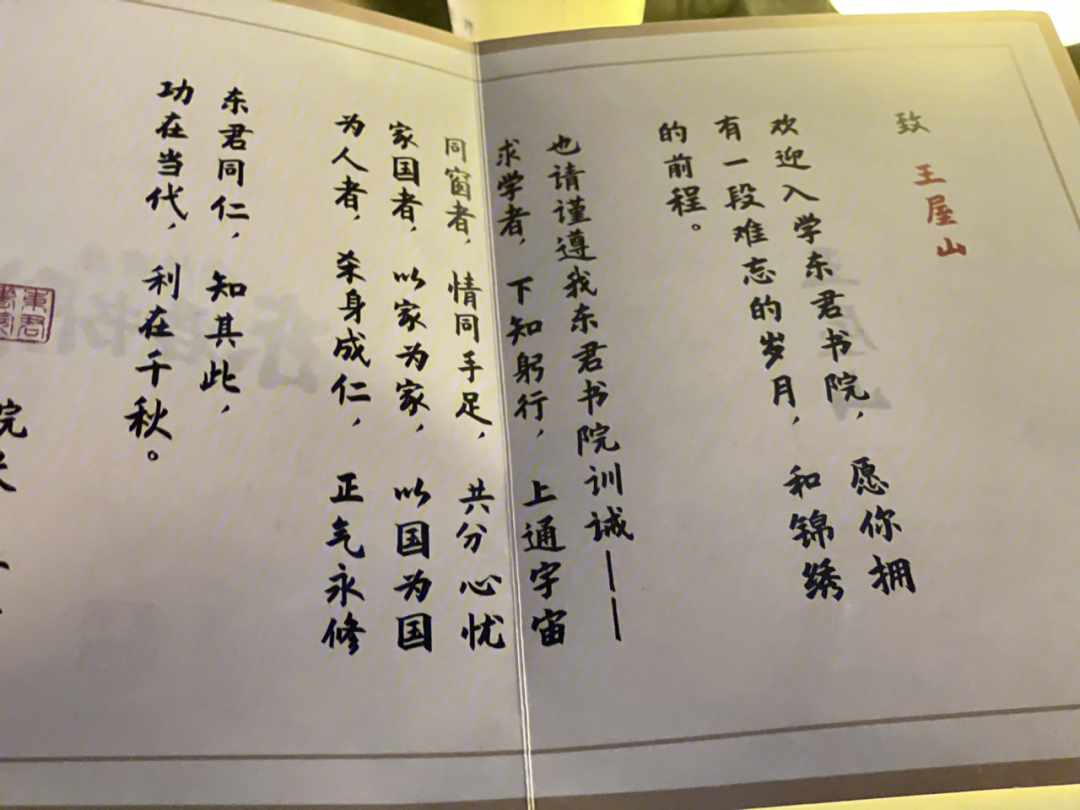 致 王屋山
欢迎入学东君书院，愿你拥
有一段难忘的岁月，和锦绣
的前程。
也请谨遵我东君书院训诫——
求学者，下知躬行，上通宇宙
同窗者，情同手足，共分心忧
家国者，以家为家，以国为国
为人者，杀身成仁，正气永修
东君同仁，知其此，
功在当代，利在千秋。
東君書院
院长